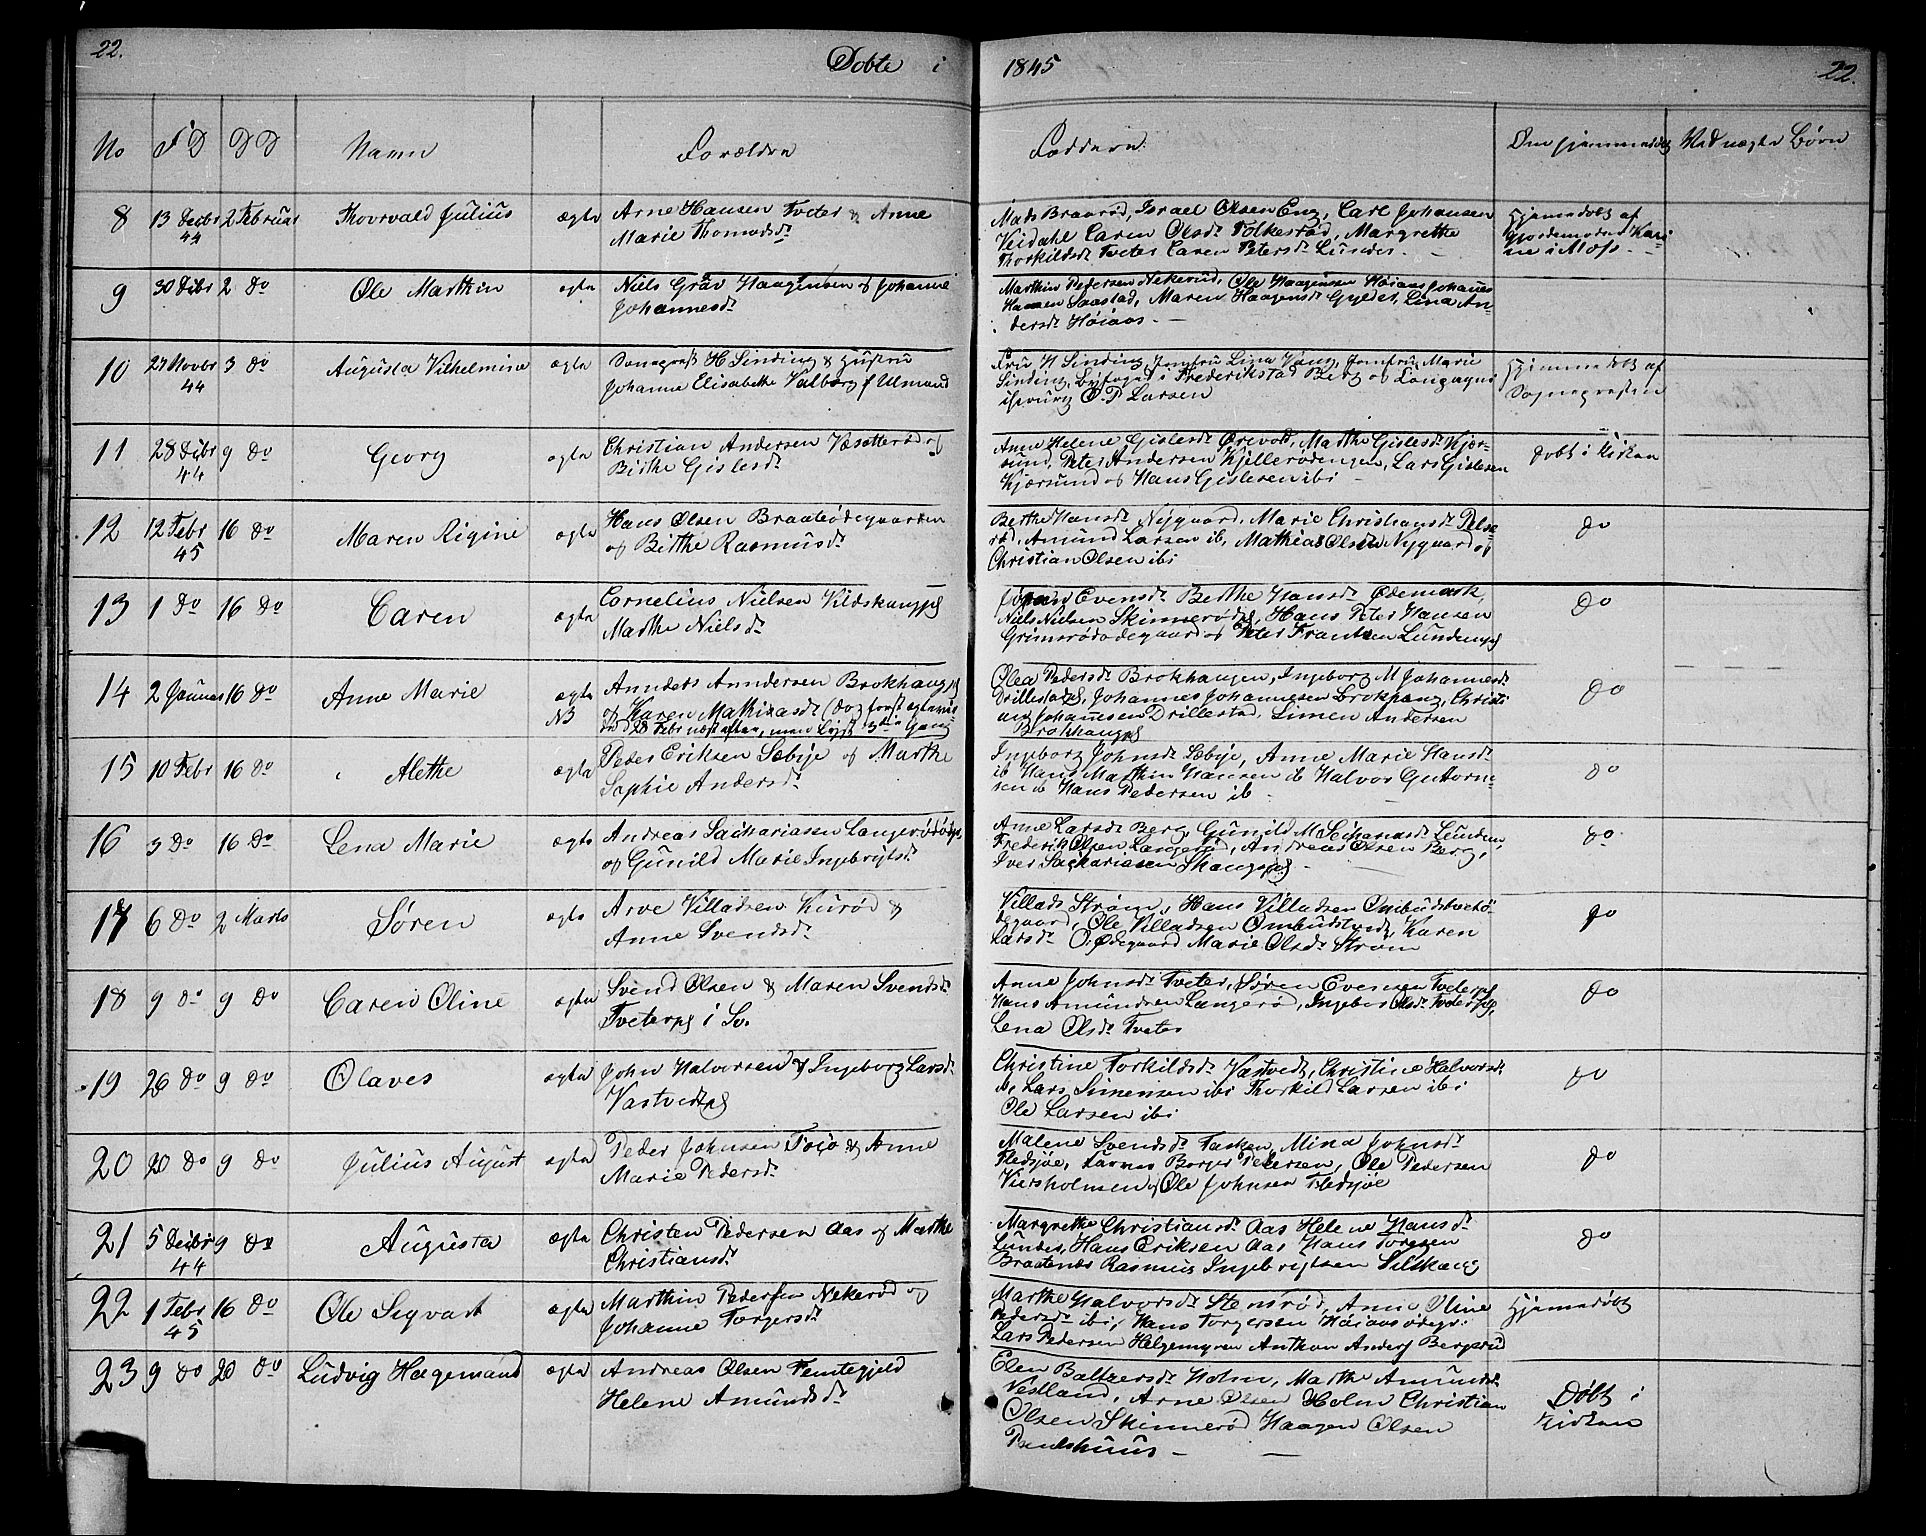 22.
Døbte i
1845
22.
No
F D
D D
Navn
Forældre
Faddere
Om hjemmedøbt
Ved uægte Børn
8 13 Decbr 44 2 Februar Thorvald Julius ægte
Arne Hansen Tveter & Anne
Marie Thomasdr
Mads Braarød, Israel Olsen Eng, Carl Johansen
Veidahl Caren Olsdr Folkestad, Margrethe
Thorkildsdr Tveter Caren Petersdr Lundes. —
Hjemmedøbt af
Gjordemoderen Kari-
ne i Moss. —
9 30 Debr 2 do Ole Marthin ægte
Niels Gräv Haagensen og Johanne
Johannesdr
Marthin Pedersen Nekerud, Ole Haagensen Høiaas Johannes
Hansen Saastad, Maren Haagensdr Gyldet, Lina An-
dersdr Høiaas —
10 27 Novbr 44 3 do Augusta Vilhelmine ægte
Sognepræst H Sinding & Hustru
Johanne Elisabethe Valborg f Ulmand
Fru H Sinding, Jomfru Lina Vang, Jomfru Marie
Sinding, Byfoged i Frederikstad Berg og
O. P. Larsen
Hjemmedøbt af
Sognepresten
11 28 Debr 44 9 do Georg ægte
Christian Andersen Væsetterød og
Birthe Gislesdr
Anne Helene Gislesdr Ørevold, Marthe Gislesdr Kjær-
sund, Peter Andersen Kjellerødengen, Lars Gislesen
Kjærsund og Hans Gislesen ibi —
Døbt i Kirken
12 12 Febr 45 16 do Maren Rigine ægte
Hans Olsen Braatødegaarden
og Birthe Rasmusdr
Berthe Hansdr Nygaard, Marie Christiansdr Pelse-
rød, Amund Larsen ib, Mathias Olsen Nygaard og
Christian Olsen ibi
do
13 1 do 16 do Caren ægte
Cornelius Nielsen Vildskougpl
Marthe Nielsdr
Evensdr Berthe Hansdr Ødemark,
Niels Nielsen Skinnerød, Hans Peter Hansen
Grimsrødødegaard og Peter Frantsen Lundenpl
do
14 2 Januar 16 do Anne Marie ægte NB
Annders Anndersen Brokhaugpl
og Karen Mathiasdr (dog først ægteviet
den 28 Febr næstefter, men lyst 3die Gang
Olea Pedersdr Brokhaugen, Ingeborg M Johannesdr
Drillestad, Johannes Johannesen Brokhaug, Christi
an Johannesen Drillestad, Simen Andersen
Brokhaugpl
do
15 10 Febr 16 do Alethe ægte
Peder Eriksen Sæbye og Marthe
Sophie Andersdr
Ingeborg Johnsdr Sæbye, Anne Marie Hansdr
ib Hans Marthin Hansen ib Halvor Guttorm-
sen ib Hans Pedersen ib
do
16 3 do 16 do Lena Marie ægte
Andreas Sachariassen Langerødødgpl
og Gunild Marie Ingebrigtsdr
Anne Larsdr Berg, Gunild M Sachariasdr Lunden
Frederik Olsen Langerød, Andreas Olsen Berg,
Iver Sachariasen Skaugpl —
do
17 6 do 2 Marts Søren ægte
Arve Villadsen Kurød &
Anne Svendsdr
Villads Strøm, Hans Villadsen Ombudstvetø-
degaard, Ole Villadsen Ombudstvedt, Karen
Larsdr O. Ødegaard Marie Olsdr Strøm
do
18 9 do 9 do Caren Oline ægte
Svend Olsen & Maren Svendsdr
Tveterpl i Sv.
Anne Johnsdr Tveter, Søren Evensen Tveterpl
Hans Amundsen Langerød, Ingebor Olsdr Tveterpl,
Lena Olsdr Tveter
do
19 26 do 9 do Olaves ægte
John Halvorsen & Ingeborg Larsdr
Vastvedtpl
Christine Torkildsdr Vastvedt, Christine Halvorsdr
ib, Lars Simensen ibi Thorkild Larsen ibi
Ole Larsen ibi
do
20 20 do 9 do Julius August ægte
Peder Johnsen Tosjø & Anne
Marie Pedersdr
Malene Svendsdr Tasken, Mina Johnsdr
Fledsjøe, Borger Petersen, Ole Pedersen
Viersholmen og Ole Johnsen Fledsjøe
do
21 5 Decbr 44 9 do Augusta ægte
Christen Pedersen Aas og Marthe
Christiansdr
Margrethe Christiansdr Aas Helene Hansdr
Lundes, Hans Eriksen Aas Hans Toresen
Braatenæs Rasmus Ingebrigtsen Slethaug
do
22 1 Febr 45 16 do Ole Sigvart ægte
Marthin Pedersen Nekerød og
Johanne Torgersdr
Marthe Halvorsdr Stensrød, Anne Oline
Pedersdr ibi, Hans Torgersen Høiaasødegr.
Lars Pedersen Helgemyren Anthon Anders Bergerud
Hjemmedøbt
23 9 do 20 do Ludvig Hagemand ægte
Andreas Olsen Femtegjeld
Helene Amundsdr
Elen Baltzersdr Holm, Marthe Amundsdr
Vestland, Arne Olsen Holm Christian
Olsen Skinnerød Haagen Olsen
Døbt i
Kirken